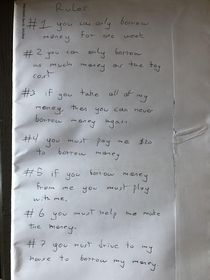 Rules
#1 you can only borrow
money for one week
#2 you can only borrow
as much money as the toy
cost
#3 if you take all of my
money, then you can never
borrow money again.
#4 you must pay me $20
to borrow money
#5 if you borrow money
from me you must play
with me.
#6 you must help me make
the money.
#7 you must drive to my
house to borrow my money